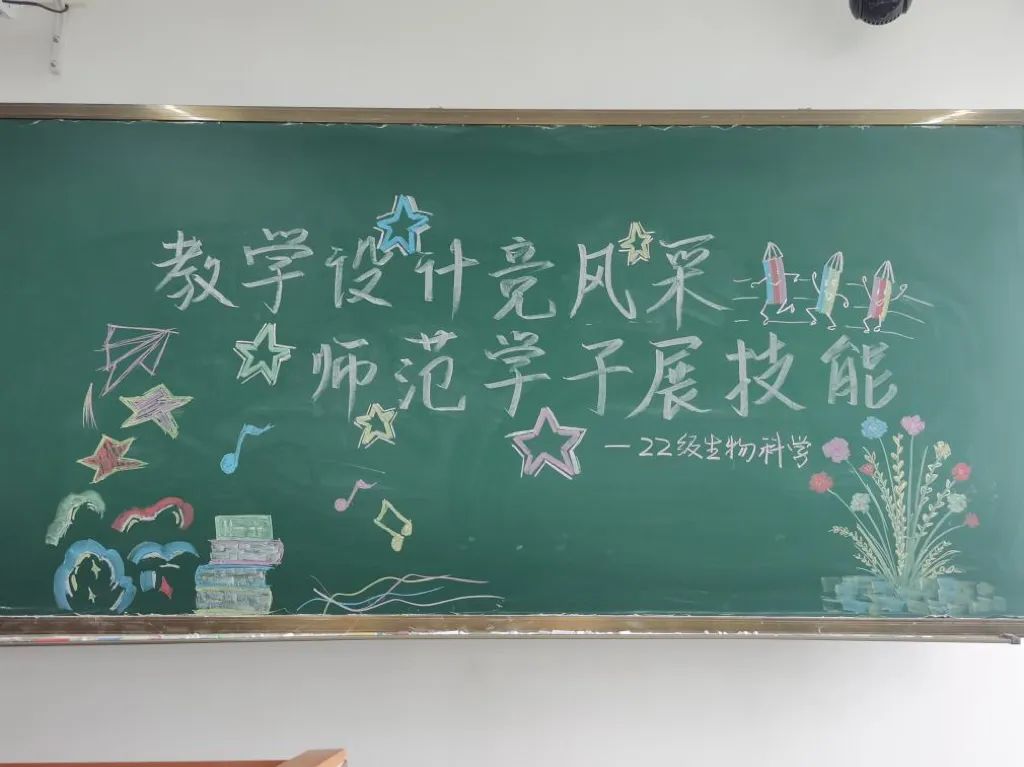 教学设计竞风采
师范学子展技能
—22级生物科学